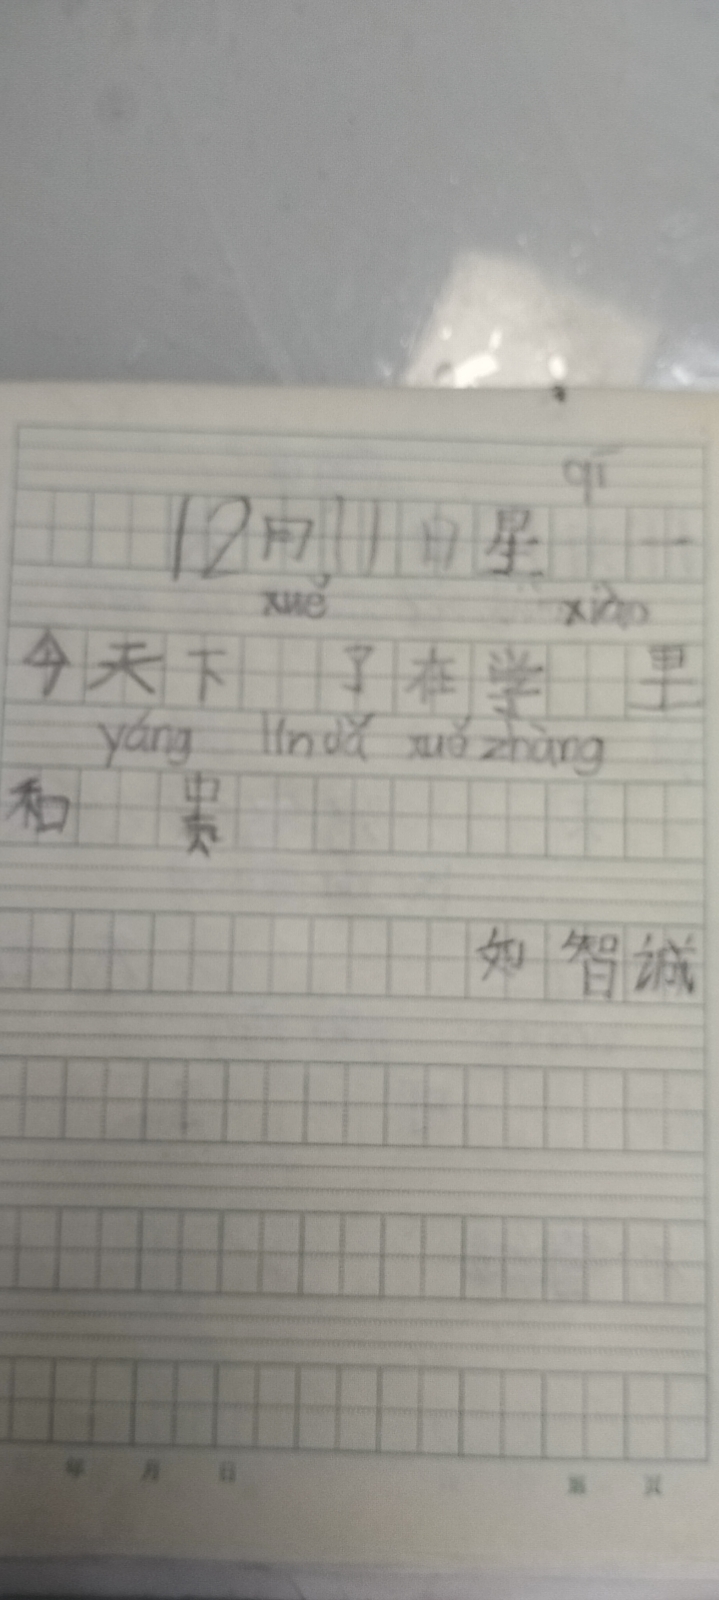 qī
12月11日星 一
xuě xiào
今天下 了在学 里
yáng lín dǎ xuě zhàng
和 贵
如智诚
年 月 日 第 页